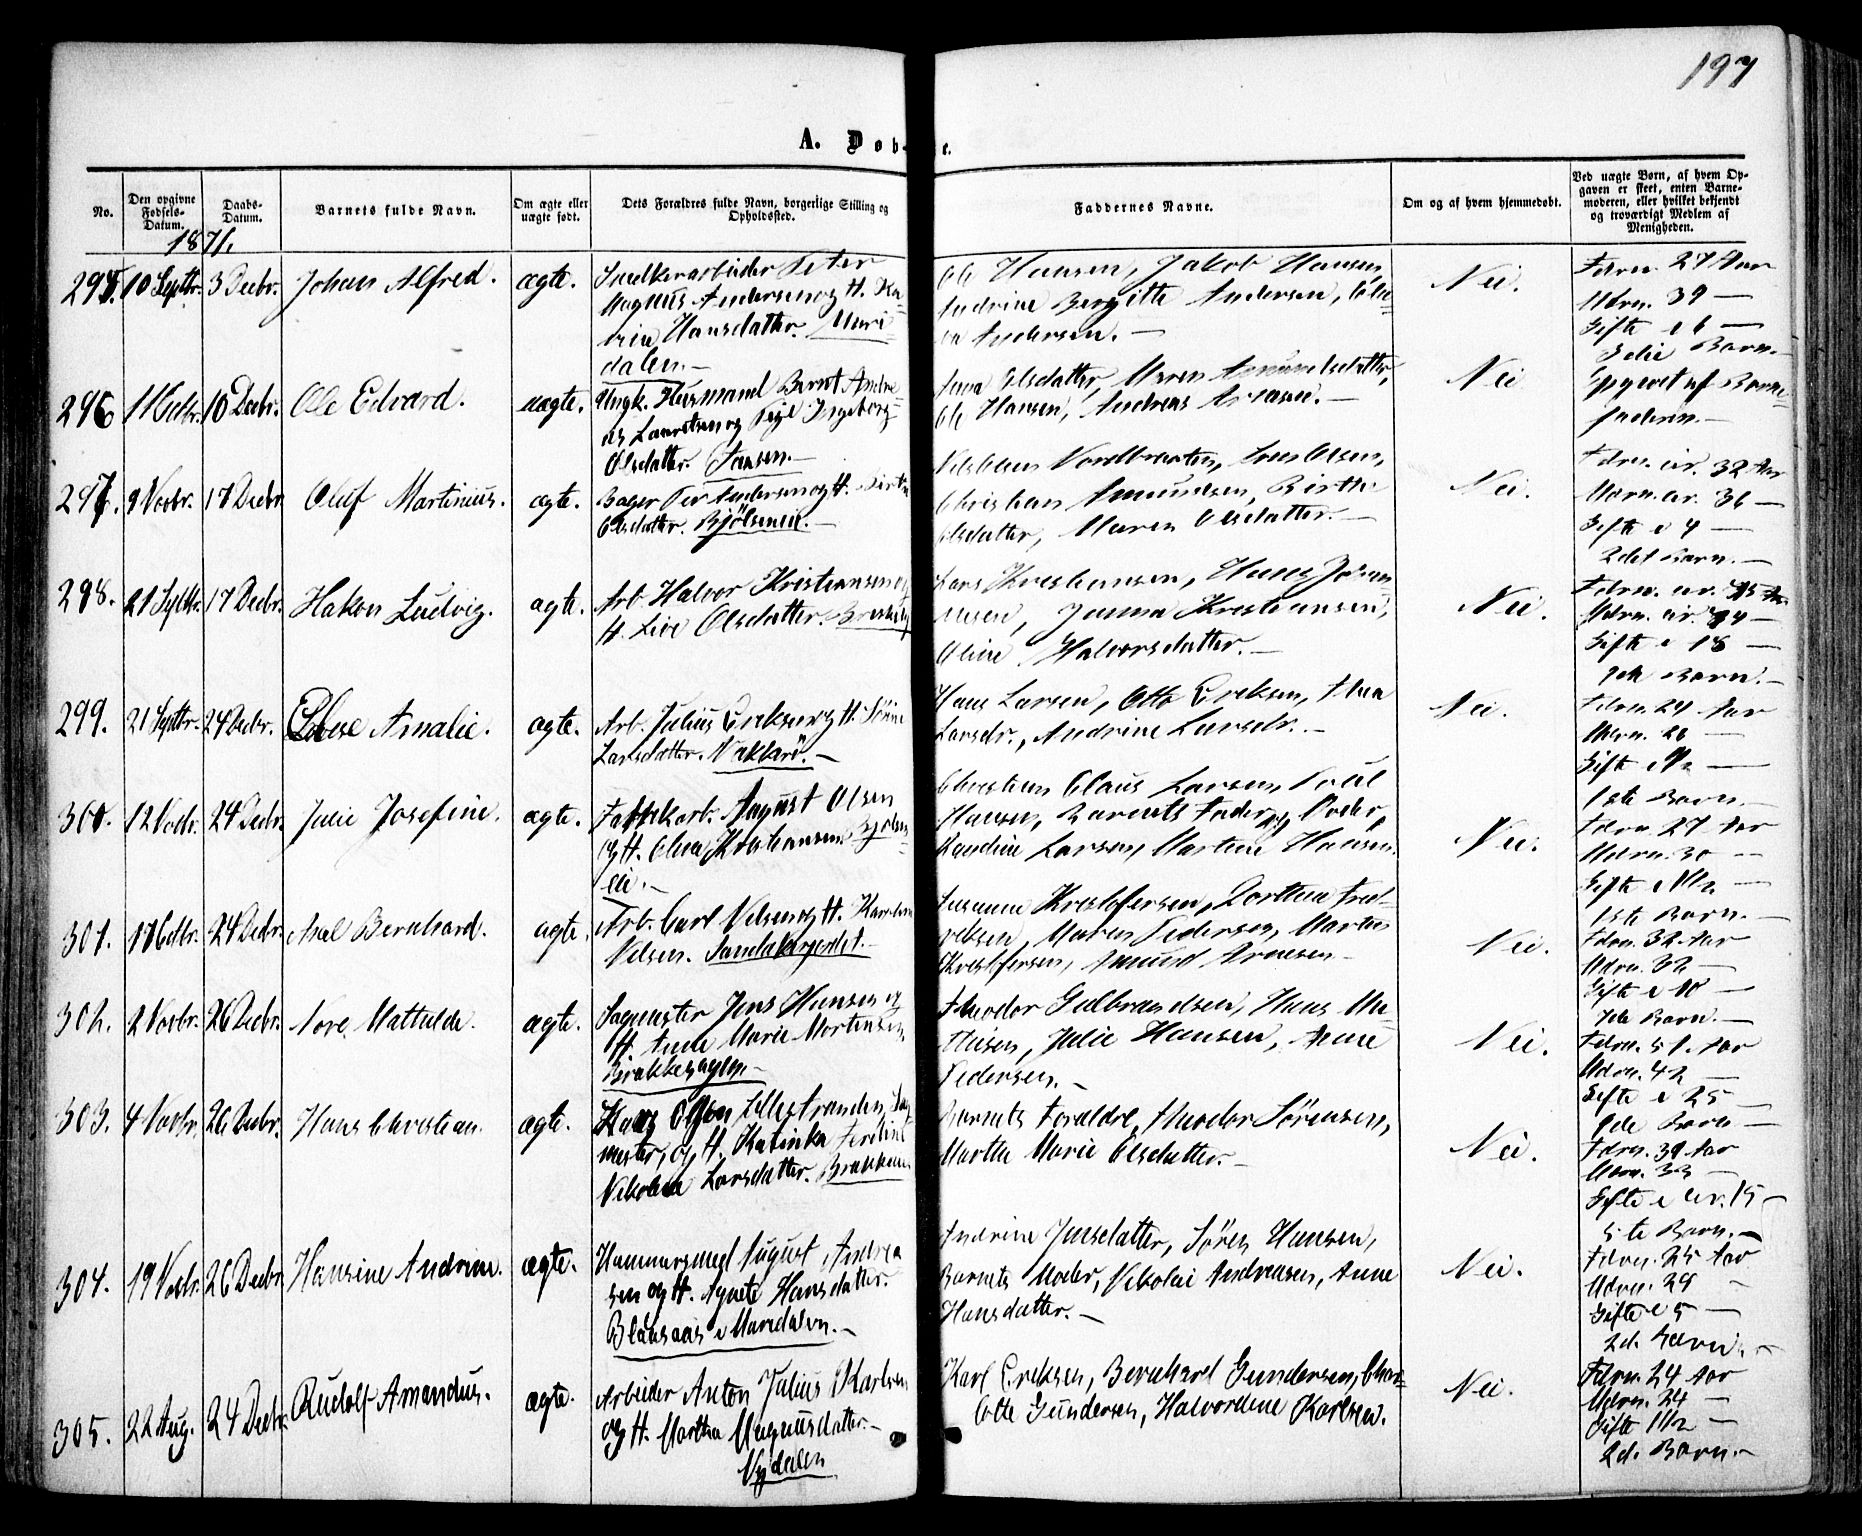 197
A. Døb- e.
No.
Den opgivne Fødsels-Datum.
Daabs-Datum.
Barnets fulde Navn.
Om ægte eller uægte født.
Dets Forældres fulde Navn, borgerlige Stilling og Opholdssted.
Faddernes Navne.
Om og af hvem hjemmedøbt.
Ved uægte Børn, af hvem Opgaven er skeet, enten Barnemoderen, eller hvilket bekjendt og troværdigt Medlem af Menigheden.
1871.
295. 10 Septbr. 3 Decbr. Johan Alfred. ægte.
Snedkerarbeider Peter
Magnus Andersen og H. Ka-
Hansdatter. Mari-
dalen.
Ole Hansen, Jakob Hansen,
Andrine Bergitte Andersen,
Andersen.
Nei.
Fdrn. 27 Aar
Mdrn. 39 —
Gifte i 6 —
Barn.
296 1 Octbr. 10 Decbr. Ole Edvard. uægte.
Ungk. Husmand Bernt Andre-
as Lauritsen og Pige Ingeborg
Olsdatter.
Olsdatter, Maren Amundsdatter,
Ole Hansen, Andreas
Nei
Opgivet af Barne-
faderen.
297. 9 Novbr. 17 Decbr. Oluf Martinius. ægte.
Bager Per Andersen og H.
Olsdatter. Bjølsenn.
Christian Amundsen, Birthe
Olsdatter, Maren Olsdatter.
Nei.
Fdrn. ca. 32 Aar
Mdrn. ca. 36 —
Gifte i 4 —
2det Barn.
298. 21 Septbr. 17 Decbr. Hakon Ludvig. ægte.
Arb. Halvor Kristiansen og
H. Live Olsdatter.
Lars Kristiansen, Hans Johan-
nesen, Kristiansen,
Oline Halvorsdatter.
Nei.
Gifte i 18 —
Barn.
299. 21 Septbr. 24 Decbr. Amalie. ægte.
Arb. Julius Eriksen og H.
Larsdatter. Nakkerø.
Hans Larsen, Otto Eriksen, Thea
Larsdr., Andrine Larsdr.
Nei.
Fdrn. 24 Aar
Mdrn. 26 —
1ste Barn.
300. 12 Novbr. 24 Decbr. Julie Josefine. ægte.
August Olsen
og H. Olea Kristiansen. Bjølsen-
Christian Claus Larsen, Poul
Hansen, Barnets Fader og Moder,
Larsen, Martine Hansen.
Nei.
Fdrn. 27 Aar
Mdrn. 30 —
1ste Barn.
301. 17 Octbr. 24 Decbr. Axel Bernhard. ægte.
Arb. Carl Nilsen og H. Karoline
Nilsen. Sandakergerdet.
Susanne Kristofersen, Dorthea Fred-
riksen, Maren Pedersen, Martin
Kristofersen, Amund Arnesen
Nei.
Fdrn. 32 Aar
Mdrn. 32 —
Gifte i 10 —
Barn.
302. 2 Novbr. 26 Decbr. Nore Mathilde. ægte.
Sagmester Jens Hansen og
H. Marie Mortensen,
Brækkesagen.
Theodor Gulbrandsen, Hans Ma-
thisen, Julie Hansen, Anne
Pedersen.
Nei.
Fdrn. 51 Aar
Mdrn. 42 —
Gifte i 25 —
9de Barn
303. 4 Novbr. 26 Decbr. Hans Christian. ægte.
Olsen Lillestranden, Sag-
mester, og H. Katinka
Nikoline Larsdatter.
Barnets Forældre, Theodor Sørensen,
Martha Marie Olsdatter.
Nei.
Fdrn. 39 Aar
Mdrn. 33 —
Gifte i ca. 15 —
5te Barn.
304. 19 Novbr. 26 Decbr. Hansine Andrine. ægte.
Hammersmed August Andrea-
sen og H. Agnete Hansdatter.
Blaasaas i Maridalen.
Andrine Jensdatter, Søren Hansen,
Barnets Moder, Nikolai Andreasen, Anne
Hansdatter.
Nei.
Fdrn. 25 Aar
Mdrn. 29 —
Gifte i 5 —
2d. Barn.
305. 22 Aug. 24 Decbr. Rudolf Amandus. ægte.
Arbeider Anton Julius Karlsen
og H. Martha Magnusdatter.
Nydalen
Karl Eriksen, Bernhard Gundersen, Char-
lotte Gundersen, Halvordine Karlsen.
Nei.
Fdrn. 24 Aar
Mdrn. 24 —
Gifte 1 1/2 —
2d. Barn.